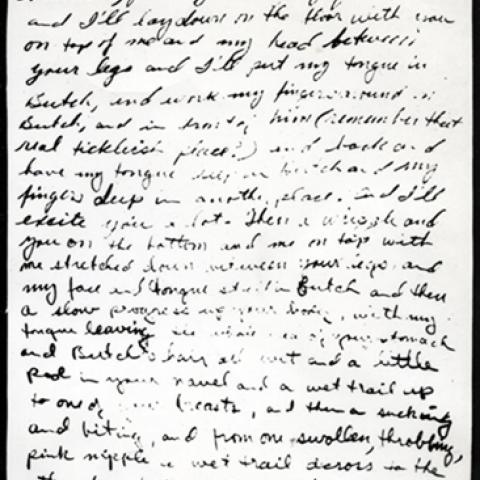 and I'll lay down on the floor with you
on top of me and my head between
your legs and I'll put my tongue in
Butch, and work my finger around in
Butch, and in front of him (remember that
real ticklish place?) and back and
have my tongue deep in Butch and my
finger deep in another place. And I'll
excite you a lot. Then a wiggle and
you on the bottom and me on top with
me stretched down between your legs and
my face and tongue still in Butch and then
a slow progress up your body, with my
tongue leaving the whole area of your stomach
and Butch's hair all wet and a little
pool in your navel and a wet trail up
to one of your breasts, and then a sucking
and biting, and from one swollen, throbbing,
pink nipple a wet trail across to the